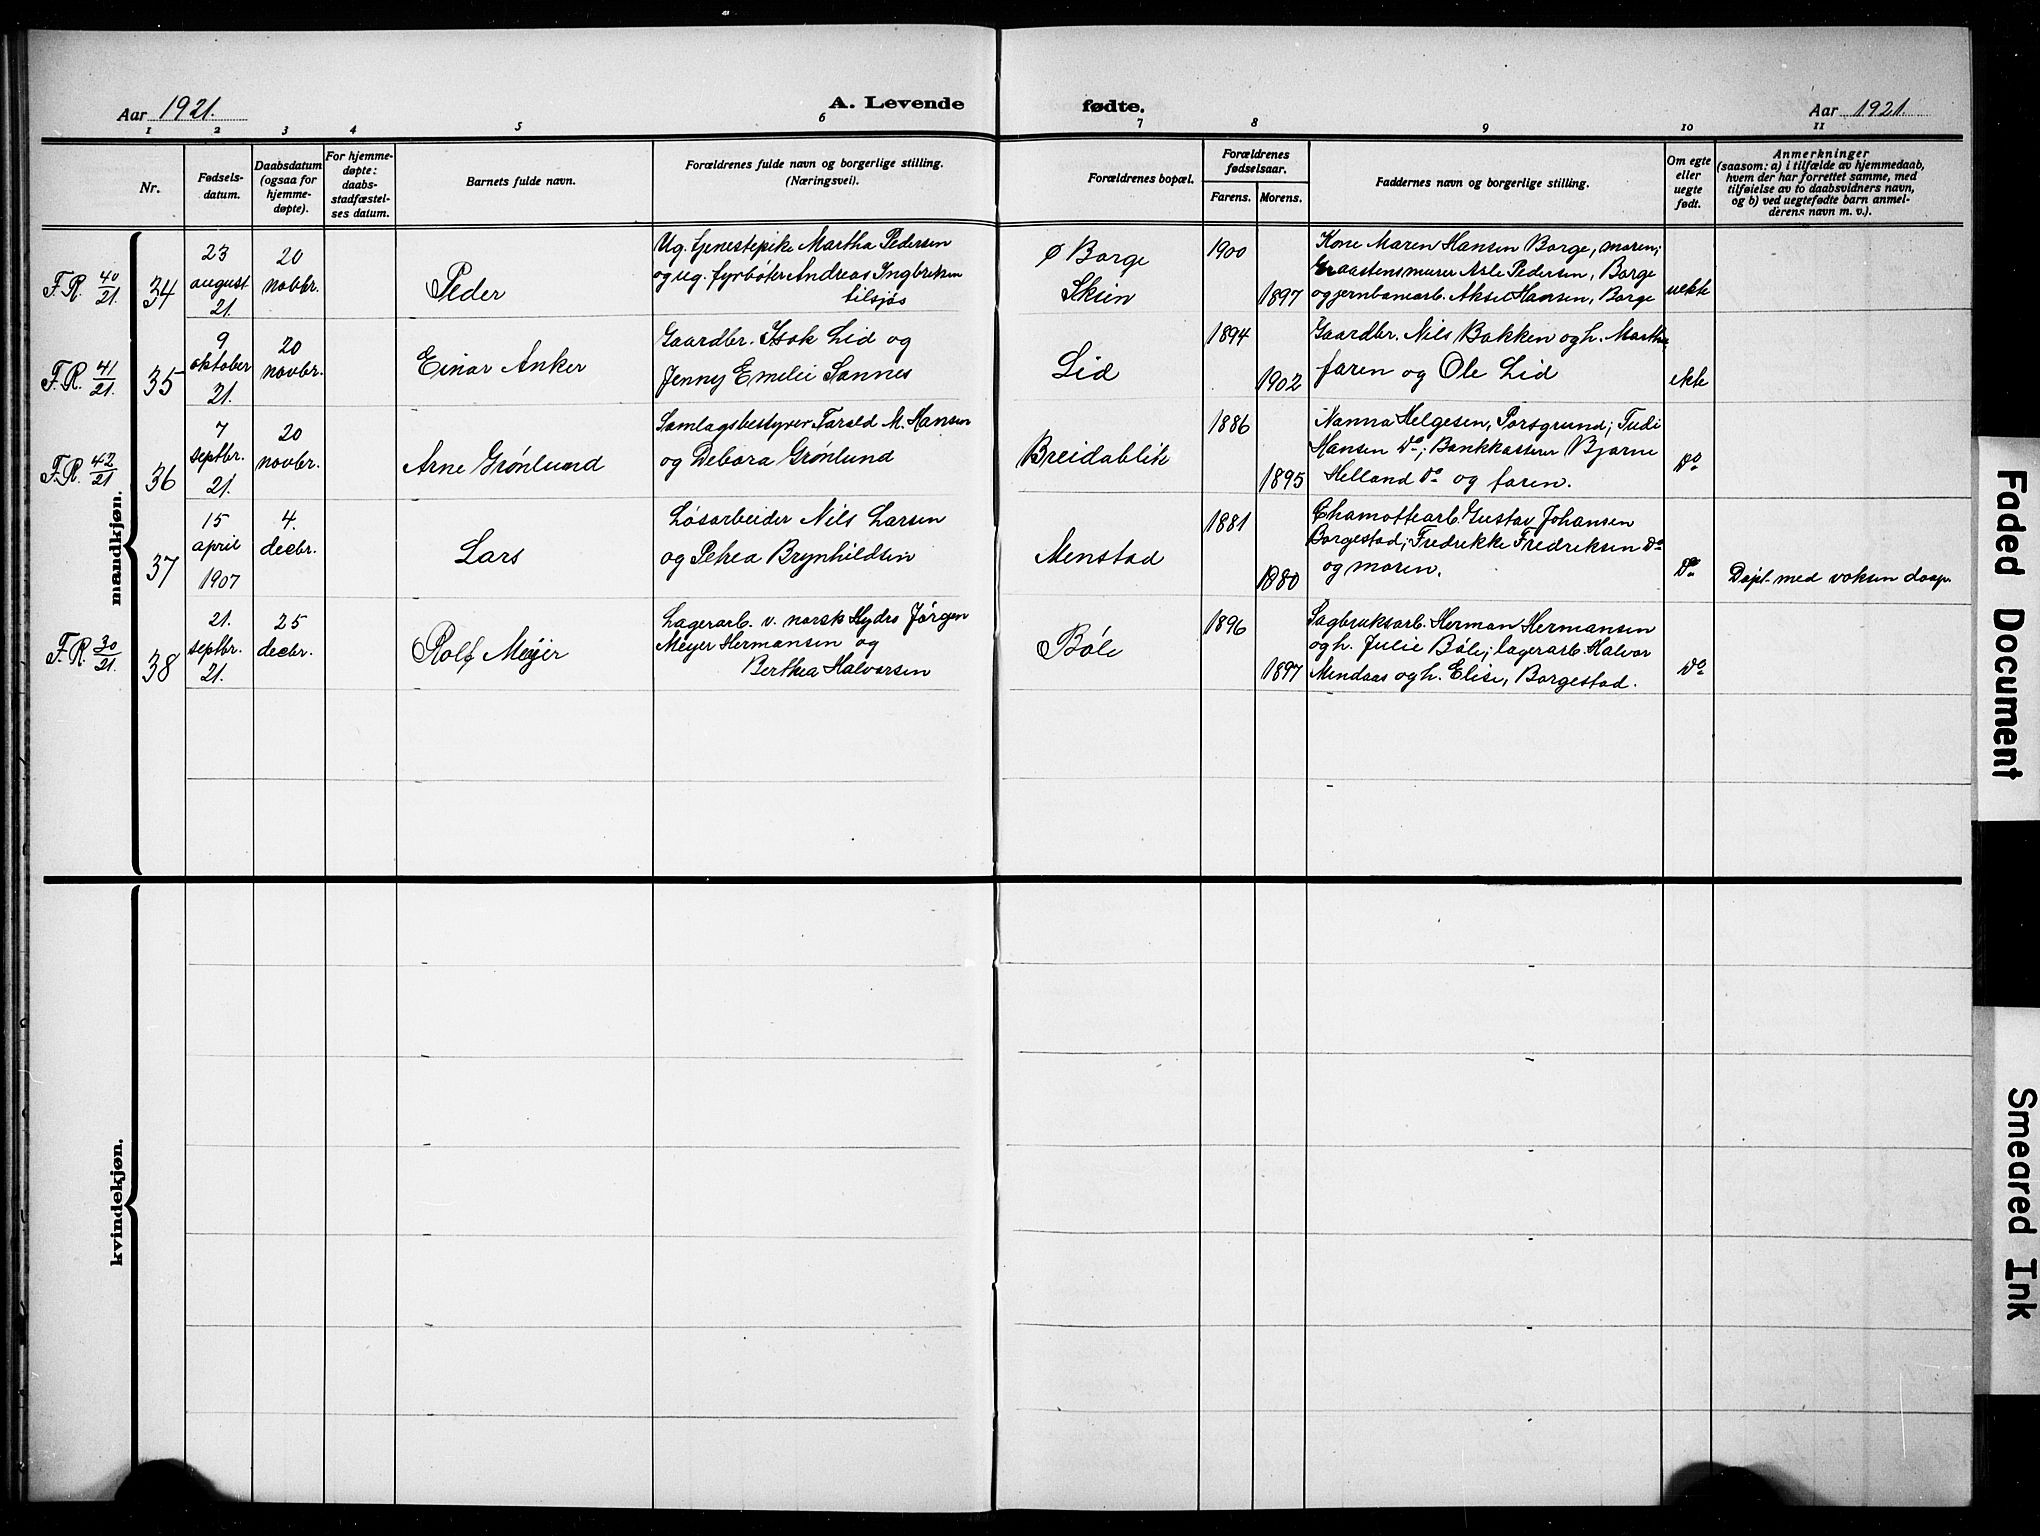 Aar 1921.
A. Levende
fødte.
Aar 1921.
1 2 3 4 5 6 7 8 9 10 11
Nr.
Fødsels-
datum.
Daabsdatum
(ogsaa for
hjemme-
døpte).
For hjemme-
døpte:
daabs-
stadfæstel-
ses datum.
Barnets fulde navn.
Forældrenes fulde navn og borgerlige stilling.
(Næringsvei).
Forældrenes bopæl.
Forældrenes
fødselsaar.
Farens. Morens.
Faddernes navn og borgerlige stilling.
Om egte
eller
uegte
født.
Anmerkninger
(saasom: a) i tilfælde av hjemmedaab,
hvem der har forrettet samme, med
tilføielse av to daabsvidners navn,
og b) ved uegtefødte barn anmel-
derens navn m. v.).
mandkjøn.
F.R. 40/21
34
23
august
21.
20
novbr.
Peder
Ug. tjenestepike Martha Pedersen
og ug. fyrbøter Andreas Ingbretsen
tilsjøs
Ø Borge
Skien
1900
1897
Kone Maren Hansen Borge, moren;
Graastensmurer Asle Pedersen, Borge
og jernbanearb. Aksel Hansen, Borge
uekte
F.R. 41/21.
35
9
oktober
21.
20
novbr.
Einar Anker
Gaardbr. Isak Lid og
Jenny Emelie Sannes
Lid
1894
1902
Gaardbr. Nils Bakken og h. Martha,
faren og Ole Lid
ekte
F.R. 42/21
36
7
septbr.
21.
20
novbr.
Arne Grønlund
Samlagsbestyrer Tarald M. Hansen
og Debora Grønlund
Breidablik
1886
1895
Nanna Helgesen, Porsgrund; Tudi
Hansen Do; Bankkasserer Bjarne
Helland Do og faren.
Do
37
15
april
1907
4.
decbr.
Lars
Løsarbeider Nils Larsen
og Pehea Brynhildsen
Menstad
1881
1880
Chamottearb. Gustav Johansen
Borgestad; Fredrikke Fredriksen Do
og moren.
Do
Døpt med voksen daap.
F.R. 30/21.
38
21.
septbr.
21.
25
decbr.
Rolf Meyer
Lagerarb. v. norsk Hydro Jørgen
Meyer Hermansen og
Berthea Halvorsen
Bøle
1896
1897
Sagbruksarb. Herman Hermansen
og h. Julie Bøle; lagerarb. Halvor
Mendaas og h. Elise, Borgestad.
Do
kvindekjøn.
Faded Document
Smeared Ink